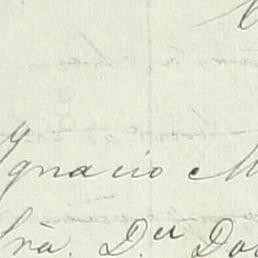 Ygnacio M
Sra. D.ª Do